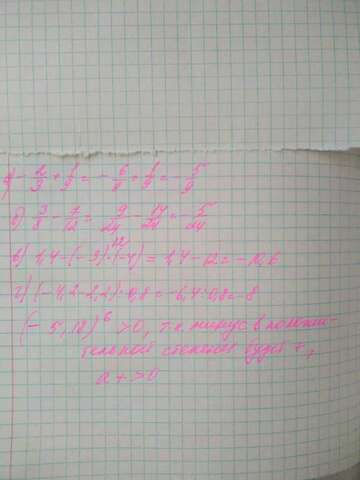 а) - 2/3 + 1/9 = - 6/9 + 1/9 = - 5/9
б) 3/8 - 7/12 = 9/24 - 14/24 = - 5/24
в) 1,4 - (- 3) · (- 4) = 1,4 - 12 = - 10,6
г) (- 4,2 - 2,2) · 0,8 = - 6,4 · 0,8 = - 8
(- 5,12)⁶ > 0, т.к. минус в положи-
тельной степени будет +,
а + > 0